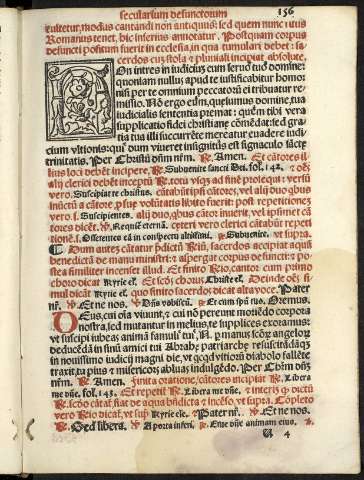 secularium defunctorum 156
cultetur, modus cantandi non antiquus: sed quem nunc utit
Romanus tenet, hic inferius annotatur. Postquam corpus
defuncti positum fuerit in ecclesia, in qua tumulari debet: sa
cerdos cum stola et pluviali incipiat absolute.
Non intres in iudiciū cum seruo tuo domine:
quoniam nullus apud te iustificabitur homo:
nisi per te omnium peccatorū ei tribuatur re-
missio. Nō ergo eūm, quesumus domine, tua
iudicialis sententia premat: quem tibi vera
supplicatio fidei christiane cōmēdat: sed gra-
tia tua illi succurrēte mereatur euadere iudi
cium vltionis: qui dum viueret insignitus est signaculo sācte
trinitatis. Per Christū dn̄m nr̄m. ℟. Amen. Et cātores il
lius loci debēt incipere. ℟. Subuenite sancti Dei. fol. 142. et oēs
alij clerici debēt incepta ℟. totū vsqꝫ ad finē prosequi: versū
vero. Suscipiat te christus. cātabūt ipsi cātores, vel alij duo qbus
iniūctū a cātore, post voluntatis libito fuerit: post repetitionez
vero. ℣. Suscipientes. alij duo, qbus cātor iniuxit, vel ipsimet cā
tores dicēt. ℣. Requiē eternā. ceteri vero clerici cātabūt repeti
tionē. ℣. Offerentes eā in conspectu altissimi. Subuenite. vt supra.
¶ Dum autez cātatur p̄dictū Riū, sacerdos accipiat aquā
benedictā de manu ministri: et aspergat corpus defuncti: et po
stea similiter incenset illud. Et finito Rio, cantor cum primo
choro dicat Kyrie el. Et scd's chorus. Christe el. Deinde oēs si
mul dicāt Kyrie el. quo finito sacerdos dicat alta voce. Pater
nr̄. ℣. Et ne nos. ℣. Dn̄s vobiscū. ℟. Et cum spū tuo. Oremus.
Deus, cui oīa viuunt, et cui nō pereunt moriēdo corpora
nostra, sed mutantur in melius, te supplices exoramus:
vt suscipi iubeas animā famuli tui, N. p manus scōꝝ angeloꝝ
deducēdā in sinū amici tui Abrahę patriarchę resuscitādāqꝫ
in nouissimo iudicij magni die, vt qcqd vitioꝝ diabolo fallēte
traxit, tu pius et misericors abluas indulgēdo. Per Chr̄m dn̄m
nr̄m. ℟. Amen. Finita oratione, cātores incipiāt ℟. Libera
me dn̄e. fol. 143. Et repetit ℟. Libera me dn̄e. et interiꝫ qꝫ dictū
℟. scdo cātat̄ fiat de aqua bn̄dicta et incēso, vt supra. Cōpleto
vero Rio dicat̄, vt sup Kyrie ele. Pater nr̄. ℣. Et ne nos.
℟. Sed libera. ℣. A porta inferi. ℟. Erue dn̄e animam eius.
4